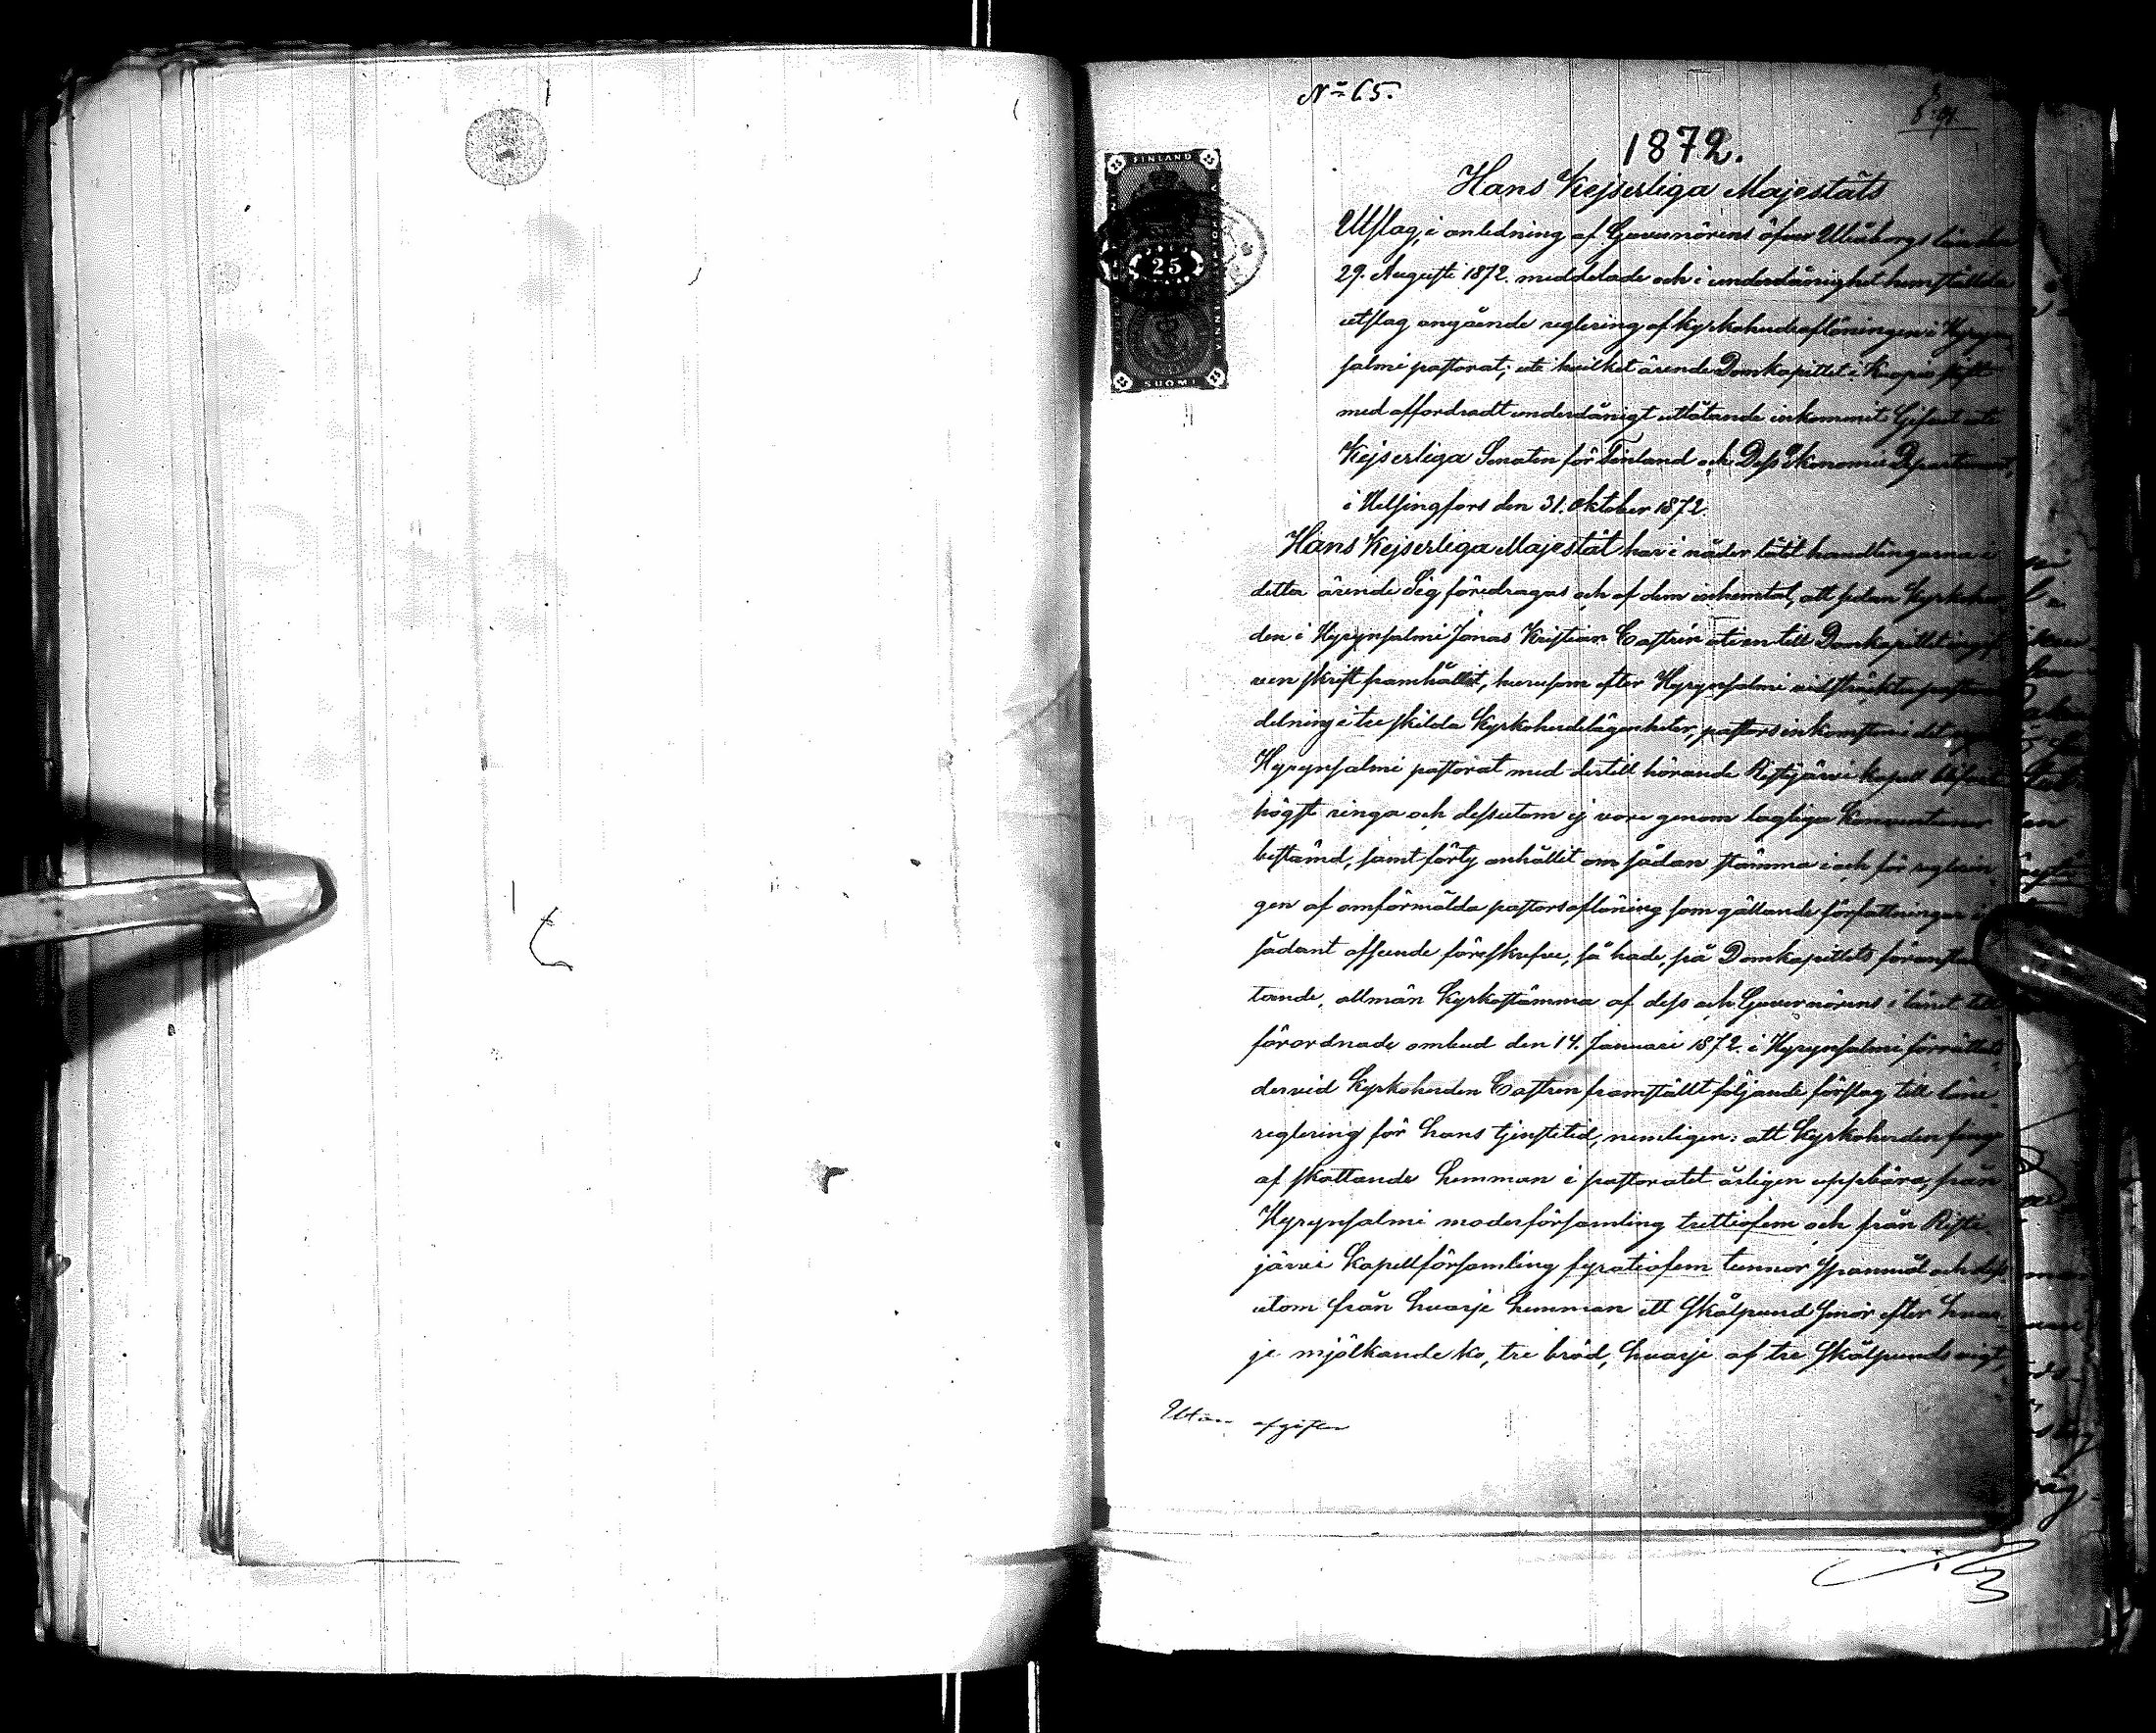 No 65.
1872.
Hans Kejserliga Majestäts
Utslag, i anledning af Guvernörens öfver Uleåborgs län den
29. Augusti 1872. meddelade och i underdånighet hemställda
utslag angående reglering af kyrkoherdeaflöningen i Hyryn-
salmi pastorat; uti hvilket ärende Domkapitlet i Kuopio stift
med affordradt underdånigt utlåtande inkommit. Gifvet uti
Kejserliga Senaten för Finland och Dess Ekonomie Departement,
i Helsingfors den 31. Oktober 1872.
FINLAND
25
SUOMI
Hans Kejserliga Majestät har i nåder låtit handlingarna i
detta ärende Sig föredragas och af dem inhemtat, att sedan Kyrkoher-
den i Hyrynsalmi Jonas Kristian Castrén uti en till Domkapitlet ingif-
ven skrift framhållit, hurusom efter Hyrynsalmi vidsträckta pastorats
delning i tre skilda Kyrkoherdelägenheter, pastorsinkomsten i det
Hyrynsalmi pastorat med dertill hörande Ristijärvi kapell blifvit
högst ringa och dessutom ej vore genom lagliga Konventioner
bestämd, samt förty anhållit om sådan stämma i och för reglerin-
gen af omförmälda pastorsaflöning som gällande författningar i
sådant afseende föreskrefve, så hade, på Domkapitlets föranstal-
tande, allmän Kyrkostämma af dess och Guvernörens i länet till
förordnade ombud den 14. Januari 1872. i Hyrynsalmi förrättats
dervid Kyrkoherden Castrén framställt följande förslag till löne-
reglering för hans tjenstetid, nemligen: att Kyrkoherden finge
af skattande hemman i pastoratet årligen uppbära, från
Hyrynsalmi moderförsamling trettiofem och från Risti-
järvi Kapellförsamling fyratiofem tunnor Spannmål och dess-
utom från hvarje hemman ett Skålpund Smör efter hvar-
je mjölkande ko, tre bröd, hvarje af tre Skålpunds vigt,
Utan afgifter